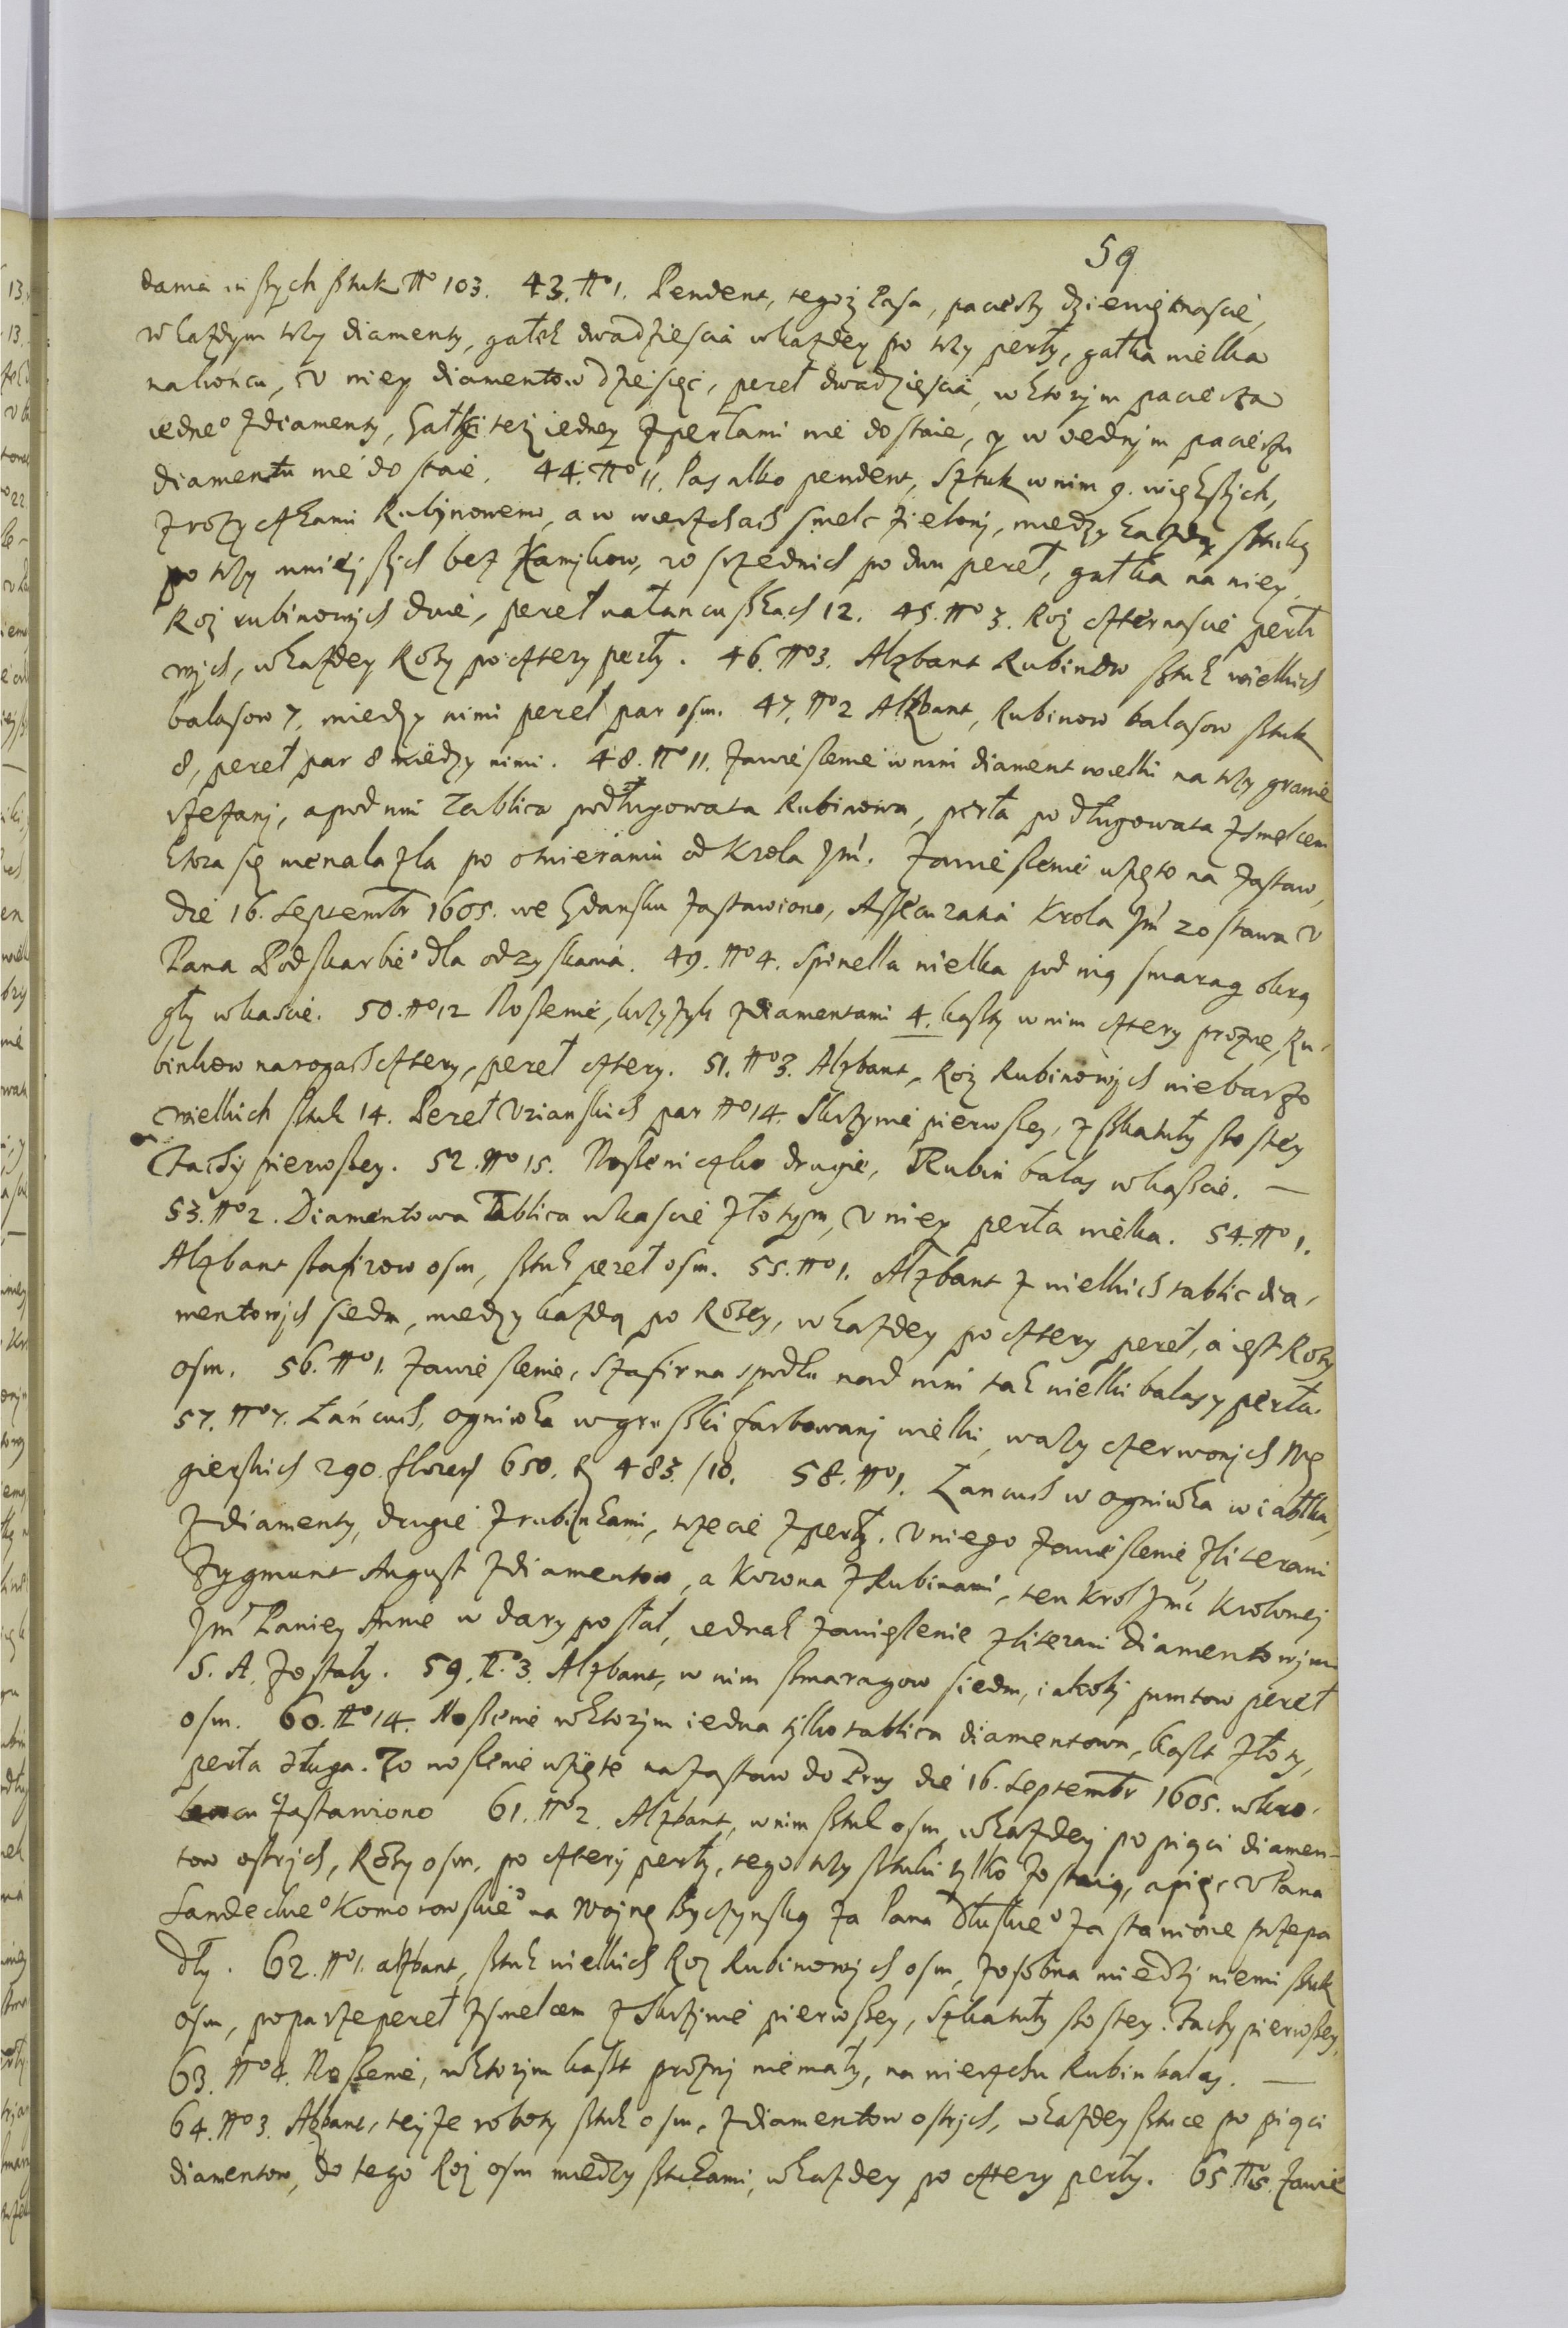 59
dania inszych sztuk No 103. 43. No 1. Pendent, tegoż Pasa, pacierzy dziewiętnascie,
w każdym trzy diamenty, gałek dwadziescia w każdey po trzy perły, gałka wielka
na końcu, v niey diamentow dziesięć, pereł dwadziescia, w ktorym pacierza
iedne° z diamenty, Gałki tez iedney z perłami nie dostaie, y w iednym pacierzu
diamentu nie dostaie. 44. No 11. Pas albo pendent, Sztuk w nim 9. większych,
z rożyczkami Rubinowemi, a w wierzchach smelc zielony, miedzy każdą sztuką
po trzy mnieyszych bez kamykow, 20 srzednich po dwu pereł, gałka na niey
Roż rubinowych dwie, pereł na łancuszkach 12. 45. No 3. Roż czternascie perło
wych, w każdey Roży po cztery perły. 46. No 3. Alzbant Rubinow sztuk wielkich
balasow 7, miedzy nimi pereł par osm. 47. No 2 Alzbant, Rubinow balasow sztuk
8, pereł par 8 miedzy nimi. 48. No 11. Zawieszenie w nim diament wielki na trzy granie
rzezany, a pod nim Tablica podługowata Rubinowa, perła podługowata z smelcem
ktora się nienalazla po otwieraniu od Krola Jm. Zawieszenie wzięto na zastaw,
die 16. Septembr 1605. we Gdansku zastawiono, Assecuratia Krola Jm zostawa v
Pana Podskarbie° dla odzyskania. 49. No 4. Spinella wielka pod nią smarag okrą
gły w kascie. 50. No 12 Noszenie, krzyzyk z diamentami 4. kaszty w nim cztery prożne, Ru-
binkow na rogach cztery, pereł cztery. 51. No 3. Alzbant, Roż Rubinowych niebarzo
wielkich sztuk 14. Pereł Vrianskich par No 14. Skrzynie pierwszey, z szkatuły szostey
Tachy pierwszey. 52. No 15. Noszeniczko drugie, Rubin balas w kaszcie. —
53. No 2. Diamentowa Tablica w kascie złotym, v niey perła wielka. 54. No 1.
Alzbant szafirow osm, sztuk pereł osm. 55. No 1. Alzbant z wielkich tablic dia-
mentowych siedm, miedzy każdą po Roży, w każdey po cztery pereł, a iest Roży
osm. 56. No 1. Zawieszenie, Szafir na spodku nad nim tak wielki balas y perła.
57. No 7. Łańcuch, ogniwka w gruszki farbowany wielki, waży czerwonych Wę
gierskich 290. floren 650. 483./10. 58. No 1. Łancuch w ogniwka w iabłka,
z diamenty, drugie z rubinkami, trzecie z perły. v niego zawieszenie z literami
Zygmunt August z diamentow, a Korona z Rubinami, ten Krol Jmć Krolowej
Jm Paniey Annie w dary posłał, iednak zawieszenie z literami diamentowymi
S. A. zostały. 59. No 3. Alzbant, w nim szmaragow siedm, iakoby puntow pereł
osm. 60. No 14. Noszenie w ktorym iedna tylko tablica diamentowa, kaszt złoty,
perła długa. To noszenie wzięte na zastaw do Prus die 16. Septembr 1605. w kro-
zastawiono 61. No 2. Alzbant, w nim sztuk osm, w każdey po pięci diamen-
tow ostrych, Roży osm, po cztery perły, tego trzy sztuki tylko zostaią, a pięć v Pana
Sandeckie° Komorowskie° na Woynę Byczynską za Pana zastawione przepa
dły. 62. No 1. alzbant, sztuk wielkich Roż Rubinowych osm, zosobna miedzy niemi sztuk
osm, po parze pereł z smelcem z Skrzynie pierwszey, Szkatuły szostey. Tachy pierwszey,
63. No 4. Noszenie, w ktorym kaszt prożny niemały, na wierzchu Rubin balas. —
64. No 3. Alzbant, teyże roboty sztuk osm, z diamentow ostrych, w każdey sztuce po pięci
diamentow, do tego Roż osm miedzy sztukami, w każdey po cztery perły. 65. No 5. Zawie